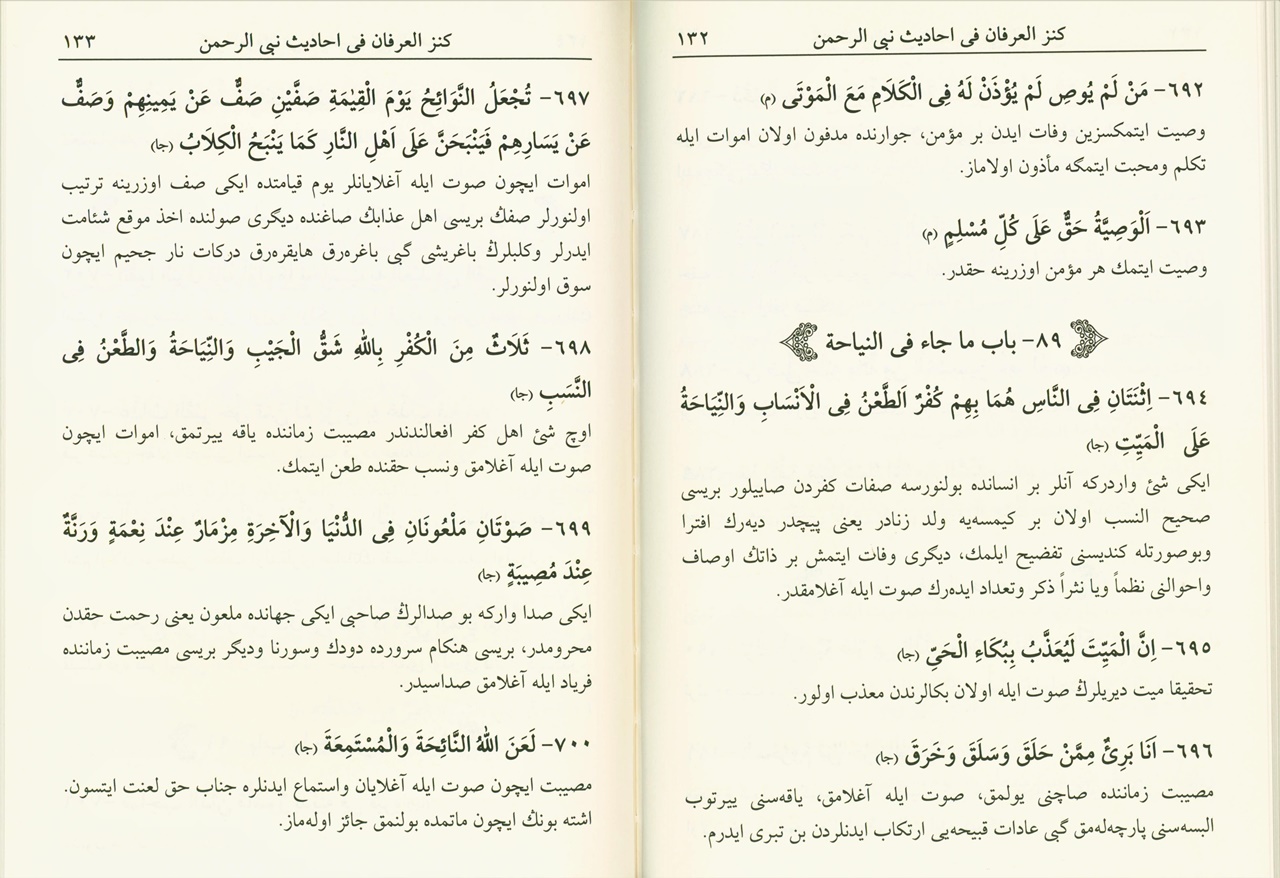 كنز العرفان فى احاديث نبى الرحمن ١٣٢
٦٩٢- مَنْ لَمْ يُوصِ لَمْ يُؤْذَنْ لَهُ فِى الْكَلَامِ مَعَ الْمَوْتَى (م)
وصيت ايتمكسزين وفات ايدن بر مؤمن، جوارنده مدفون اولان اموات ايله
تكلم ومحبت ايتمگه مأذون اولاماز.
٦٩٣- اَلْوَصِيَّةُ حَقٌّ عَلَى كُلِّ مُسْلِمٍ (م)
وصيت ايتمك هر مؤمن اوزرينه حقدر.
٨٩- باب ما جاء فى النياحة
٦٩٤- اِثْنَتَانِ فِى النَّاسِ هُمَا بِهِمْ كُفْرٌ اَلطَّعْنُ فِى الْاَنْسَابِ وَالنِّيَاحَةُ
عَلَى الْمَيِّتِ (جا)
ايكى شئ واردركه آنلر بر انسانده بولنورسه صفات كفردن صاييلور بريسى
صحيح النسب اولان بر كيمسه‌يه ولد زنادر يعنى پيچدر ديه‌رك افترا
وبوصورتله كنديسنى تفضيح ايلمك، ديگرى وفات ايتمش بر ذاتك اوصاف
واحوالنى نظماً ويا نثراً ذكر وتعداد ايده‌رك صوت ايله آغلامقدر.
٦٩٥- اِنَّ الْمَيِّتَ لَيُعَذَّبُ بِبُكَاءِ الْحَيِّ (جا)
تحقيقا ميت ديريلرڭ صوت ايله اولان بكالرندن معذب اولور.
٦٩٦- اَنَا بَرِئٌ مِمَّنْ حَلَقَ وَسَلَقَ وَخَرَقَ (جا)
مصيبت زماننده صاچنى يولمق، صوت ايله آغلامق، ياقه‌سنى ييرتوب
البسه‌سنى پارچه‌له‌مق گبى عادات قبيحه‌يى ارتكاب ايدنلردن بن تبرى ايدرم.
كنز العرفان فى احاديث نبى الرحمن ١٣٣
٦٩٧- تُجْعَلُ النَّوَائِحُ يَوْمَ الْقِيٰمَةِ صَفَّيْنِ صَفٌّ عَنْ يَمِينِهِمْ وَصَفٌّ
عَنْ يَسَارِهِمْ فَيَنْبَحْنَ عَلَى اَهْلِ النَّارِ كَمَا يَنْبَحُ الْكِلَابُ (جا)
اموات ايچون صوت ايله آغلايانلر يوم قيامتده ايكى صف اوزرينه ترتيب
اولنورلر صفك بريسى اهل عذابك صاغنده ديگرى صولنده اخذ موقع شئامت
ايدرلر وكلبلرڭ باغريشى گبى باغره‌رق هايقره‌رق دركات نار جحيم ايچون
سوق اولنورلر.
٦٩٨- ثَلَاثٌ مِنَ الْكُفْرِ بِاللهِ شَقُّ الْجَيْبِ وَالنِّيَاحَةُ وَالطَّعْنُ فِى
النَّسَبِ (جا)
اوچ شئ اهل كفر افعالندندر مصيبت زماننده ياقه ييرتمق، اموات ايچون
صوت ايله آغلامق ونسب حقنده طعن ايتمك.
٦٩٩- صَوْتَانِ مَلْعُونَانِ فِى الدُّنْيَا وَالْآخِرَةِ مِزْمَارٌ عِنْدَ نِعْمَةٍ وَرَنَّةٌ
عِنْدَ مُصِيبَةٍ (جا)
ايكى صدا واركه بو صدالرڭ صاحبى ايكى جهانده ملعون يعنى رحمت حقدن
محرومدر، بريسى هنكام سرورده دودك وسورنا وديگر بريسى مصيبت زماننده
فرياد ايله آغلامق صداسيدر.
٧٠٠- لَعَنَ اللهُ النَّائِحَةَ وَالْمُسْتَمِعَةَ (جا)
مصيبت ايچون صوت ايله آغلايان واستماع ايدنلره جناب حق لعنت ايتسون.
اشته بونڭ ايچون ماتمده بولنمق جائز اوله‌ماز.